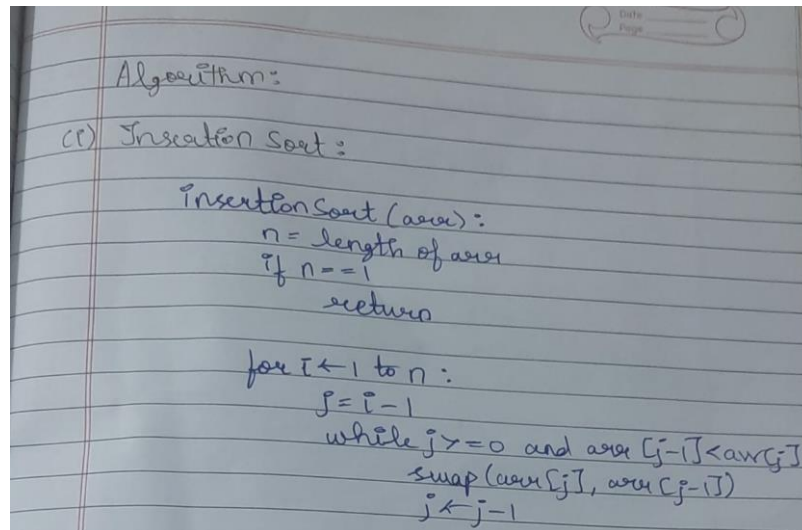 Date
Page
Algorithm:
(i) Insertion Sort:
insertionSort(arr):
n = length of arr
if n==1
return
for i ← 1 to n:
j = i - 1
while j >= 0 and arr [j-1] < arr[j]
swap(arr[j], arr[j-1])
j ← j - 1